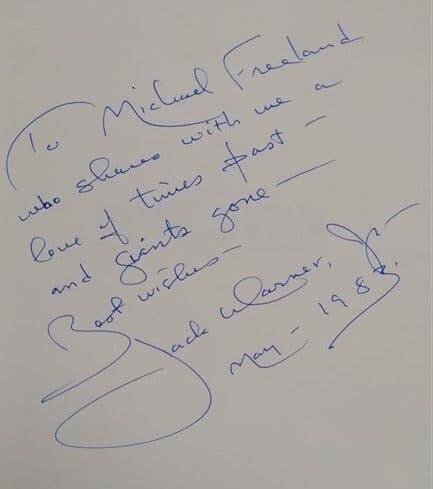 To Michael Freeland
who shares with me a
love of times past –
and giants gone —
Best wishes –
Jack Warner, Jr –
May – 1983.